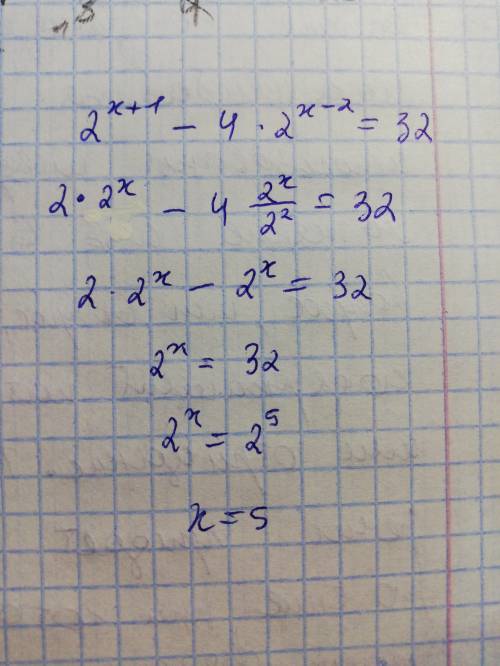 2^{x+1} - 4 · 2^{x-2} = 32
2 · 2^x - 4 \frac{2^x}{2^2} = 32
2 · 2^x - 2^x = 32
2^x = 32
2^x = 2^5
x = 5